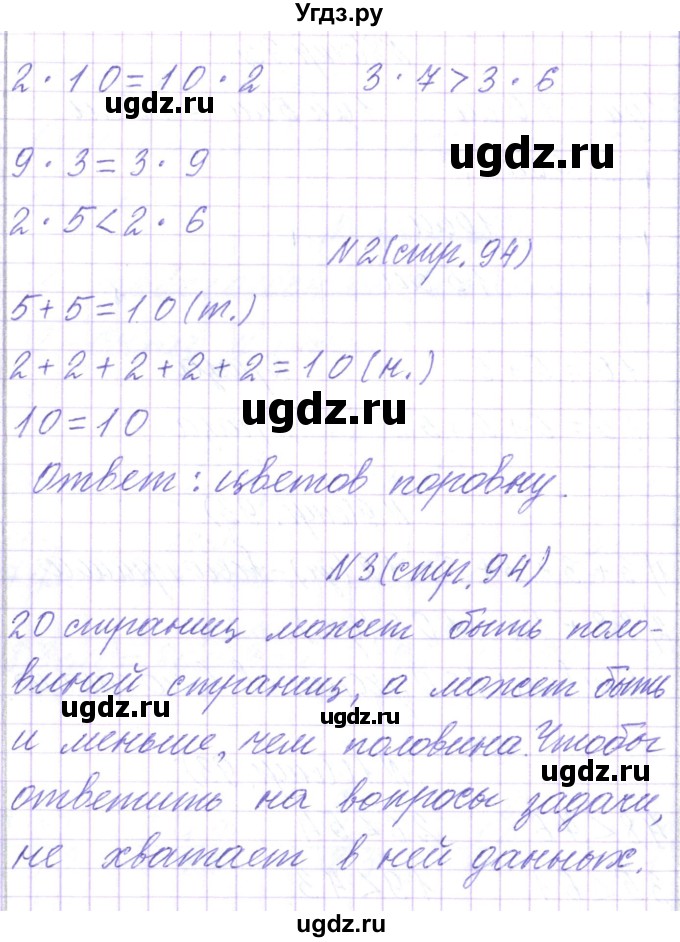 Угдз.ру
2 · 10 = 10 · 2 3 · 7 > 3 · 6
ugdz.ru
ugdz.ru
9 · 3 = 3 · 9
2 · 5 < 2 · 6
N2 (стр. 94)
5 + 5 = 10 (т.)
2 + 2 + 2 + 2 + 2 = 10 (н.)
ugdz.ru
10 = 10
Ответ: цветов поровну.
N3 (стр. 94)
20 страниц может быть поло-
виной страниц, а может быть
ugdz.ru
ugdz.ru
и меньше, чем половина. Чтобы
ugdz.ru
ответить на вопросы задачи,
не хватает в ней данных.
ugdz.ru